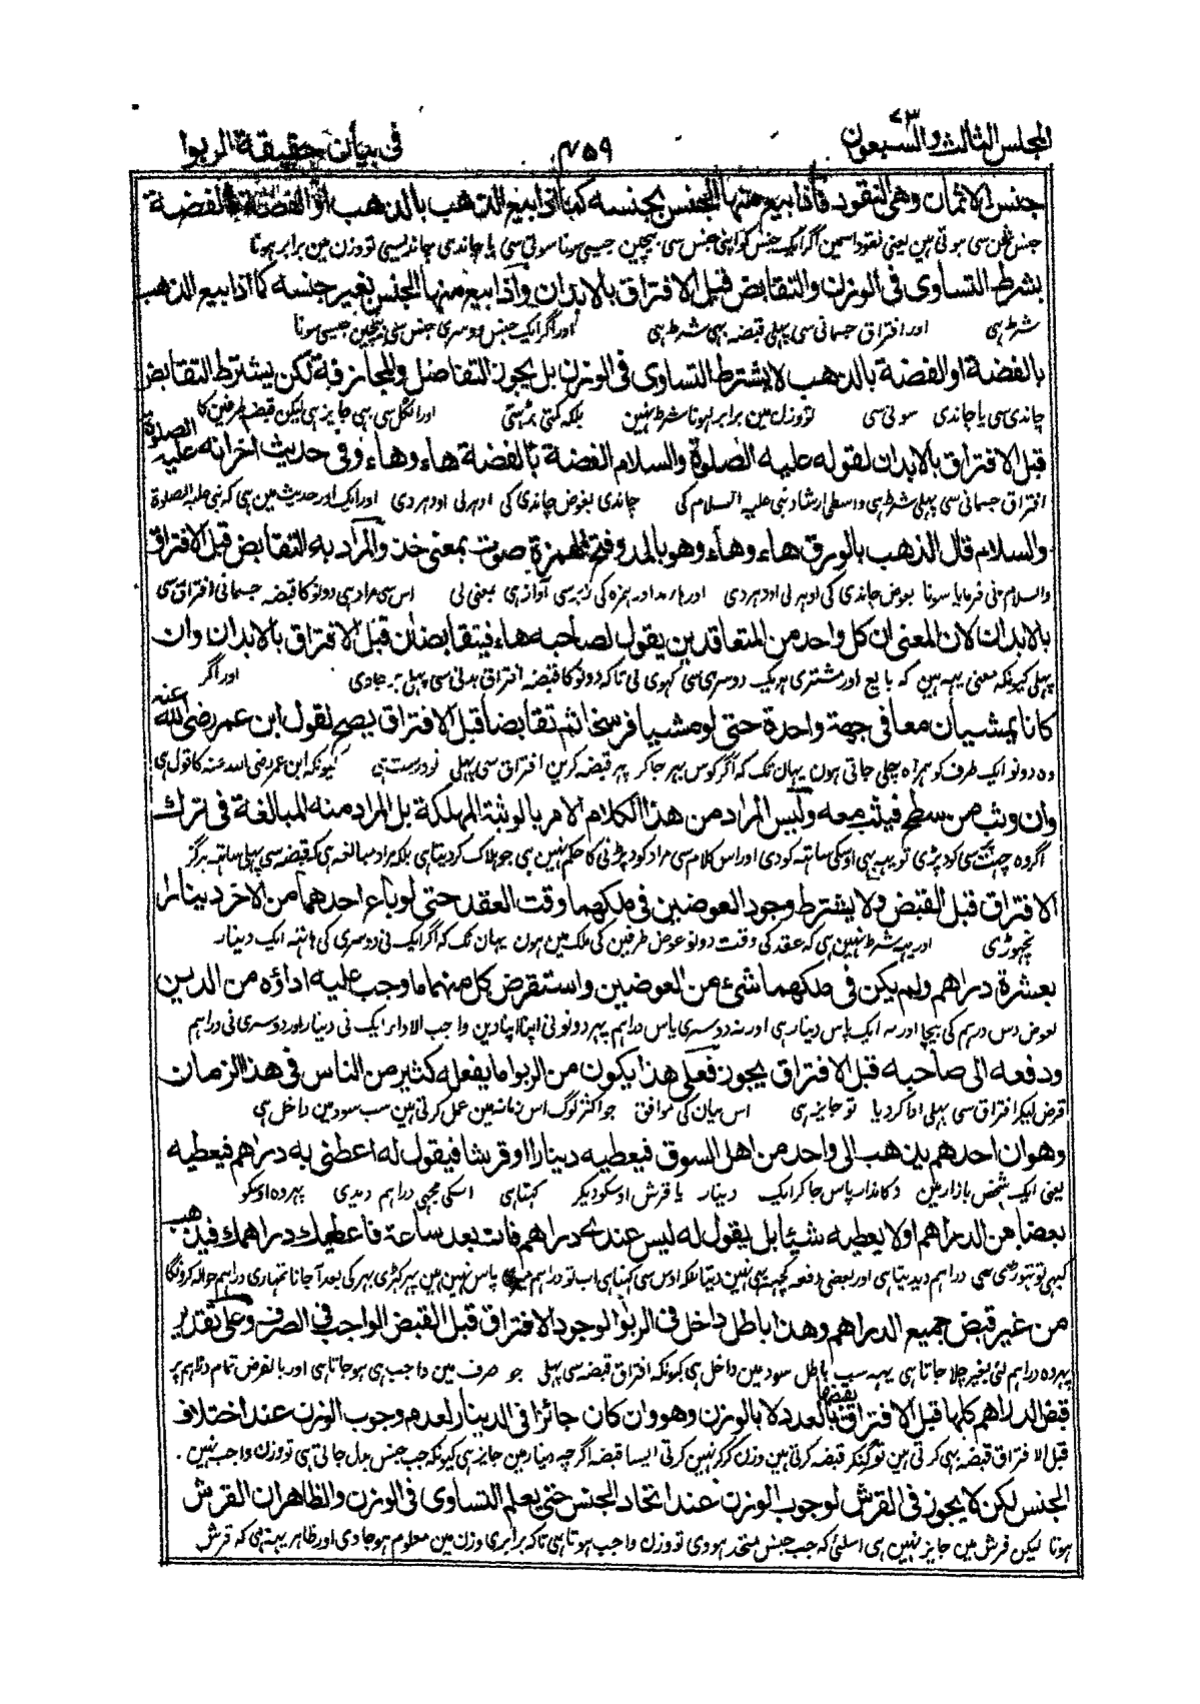 المجلس الثالث والسبعون ٧٣
٤٥٩
فی بیان حقیقة الربوا
جنس الاثمان وهی النقود فاذا بیع منها الجنس بجنسه کما اذا بیع الذهب بالذهب او الفضة بالفضة
جنس ثمن سی ہوتی ہین یعنی نقود اسمین اگر ایک جنس کو اپنی جنس سی بیچین جیسی سونا سونی سی یا چاندی چاندی سی تو وزن مین برابر ہونا
بشرط التساوی فی الوزن والتقابض قبل الافتراق بالابدان واذا بیع منها الجنس بغیر جنسه کما اذا بیع الذهب
شرط ہی اور افتراق جسمانی سی پہلی قبضہ بہی شرط ہی اور اگر ایک جنس دوسری جنس سی بیچین جیسی سونا
بالفضة او الفضة بالذهب لا یشترط التساوی فی الوزن بل یجوز التفاضل والمجازفة لکن یشترط التقابض
چاندی سی یا چاندی سونی سی تو وزن مین برابر ہونا شرط نہین بلکہ کمتی بڑہتی اور اٹکل سی بہی جایز ہی لیکن قبضہ طرفین کا
قبل الافتراق بالابدان لقوله علیه الصلوة والسلام الفضة بالفضة هاء وهاء وفی حدیث اخر انه علیه الصلوة
افتراق جسمانی سی پہلی شرط ہی واسطی ارشاد نبی علیہ السلام کی چاندی بعوض چاندی کی اودہر لی اودہر دی اور ایک اور حدیث مین ہی کہ نبی علیہ الصلوة
والسلام قال الذهب بالورق هاء وهاء وهو بالمد وفتح الهمزة صوت بمعنی خذ والمراد به التقابض قبل الافتراق
والسلام نی فرمایا سونا بعوض چاندی کی اودہر لی اودہر دی اور ہا مد اور ہمزہ کی زبر سی آواز ہی بمعنی لی اس سی مراد ہی دونو کا قبضہ جسمانی افتراق سی
بالابدان لان المعنی ان کل واحد من المتعاقدین یقول لصاحبه هاء فیتقابضان قبل الافتراق بالابدان وان
پہلی کیونکہ معنی یہہ ہین کہ بایع اور مشتری ہر یک دوسری سی کہوی لی تاکہ دونو کا قبضہ افتراق بدنی سی پہلی ہو جاوی اور اگر
کانا یمشیان معا فی جهة واحدة حتی لو مشیا فرسخا ثم تقابضا قبل الافتراق یصح لقول ابن عمر رضی الله عنه
وہ دونو ایک طرف کو ہمراہ چلی جاتی ہون یہان تک کہ اگر کوس بہر جا کر پہر قبضہ کرین افتراق سی پہلی تو درست ہی کیونکہ ابن عمر رضی اللہ عنہ کا قول ہی
وان وثب من سطح فثب معه ولیس المراد من هذا الکلام الامر بالوثبة المهلکة بل المراد منه المبالغة فی ترک
اگر وہ چہت سی کود پڑی تو یہہ بہی اوسکی ساتہہ کودی اور اس کلام سی مراد کود پڑنی کا حکم نہین ہی جو ہلاک کردیتا ہی بلکہ مراد مبالغہ ہی کہ قبضہ سی پہلی ساتہہ ہرگز
الافتراق قبل القبض ولا یشترط وجود العوضین فی ملکهما وقت العقد حتی لو باع احدهما من الاخر دینارا
نچہوڑی اور یہہ شرط نہین ہی کہ عقد کی وقت دونو عوض طرفین کی ملک مین ہون یہان تک کہ اگر ایک نی دوسری کی ہاتہہ ایک دینار
بعشرة دراهم ولم یکن فی ملکهما شئ من العوضین واستقرض کل منهما ما وجب علیه اداؤه من الدین
بعوض دس درہم کی بیچا اور نہ ایک پاس دینار ہی اور نہ دوسری پاس دراہم پہر دونو نی اپنا اپنا دین واجب الادا ایک نی دینار اور دوسری نی دراہم
ودفعه الی صاحبه قبل الافتراق یجوز فعلی هذا یکون من الربوا ما یفعله کثیر من الناس فی هذا الزمان
قرض لیکر افتراق سی پہلی ادا کر دیا تو جایز ہی اس بیان کی موافق جو اکثر لوگ اس زمانہ مین عمل کرتی ہین سب سود مین داخل ہی
وهو ان احدهم یذهب الی واحد من اهل السوق فیعطیه دینارا او قرشا فیقول له اعطنی به دراهم فیعطیه
یعنی ایک شخص بازار مین دکاندار پاس جا کر ایک دینار یا قرش اوسکو دیکر کہتا ہی اسکی مجہی دراہم دیدی پہر وہ اوسکو
بعضا من الدراهم او لا یعطیه شیئا بل یقول له لیس عندی دراهم فات بعد ساعة فاعطیک دراهمک فیذهب
کبہی تو تہوڑی سی دراہم دیدیتا ہی اور بعضی دفعہ کچہہ بہی نہین دیتا بلکہ اوس سی کہتا ہی اب تو دراہم میری پاس نہین ہین پہر گہڑی بہر کی بعد آجانا تمہاری دراہم حوالہ کرونگا
من غیر قبض جمیع الدراهم وهذا باطل داخل فی الربوا لوجود الافتراق قبل القبض الواجب فی الصرف وعلی تقدیر
پہر وہ دراہم لئی بغیر چلا جاتا ہی یہہ سب باطل سود مین داخل ہی کیونکہ افتراق قبضہ سی پہلی جو صرف مین واجب ہی ہو جاتا ہی اور بالفرض تمام دراہم پر
قبض الدراهم کلها قبل الافتراق یقبضها بالعدد لا بالوزن وهو وان کان جائزا فی الدینار لعدم وجوب الوزن عند اختلاف
قبل الافتراق قبضہ بہی کرتی ہین تو گنکر قبضہ کرتی ہین وزن کرکر نہین کرتی ایسا قبضہ اگرچہ دینار مین جایز ہی کیونکہ جب جنس بدل جاتی ہی تو وزن واجب نہین
الجنس لکن لا یجوز فی القرش لوجوب الوزن عند اتحاد الجنس حتی یعلم التساوی فی الوزن والظاهر ان القرش
ہوتا لیکن قرش مین جایز نہین ہی اسلئی کہ جب جنس متحد ہووی تو وزن واجب ہوتا ہی تاکہ برابری وزن مین معلوم ہو جاوی اور ظاہر یہہ ہی کہ قرش